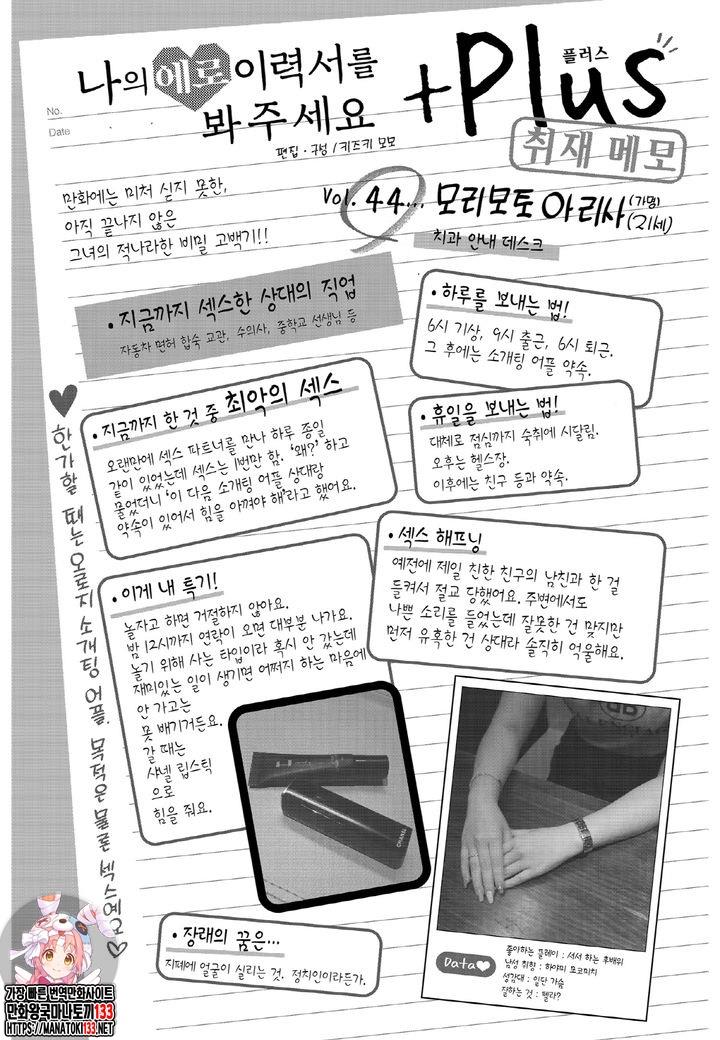 No.
Date
나의 에로 이력서를
봐주세요
+Plus
플러스
취재 메모
편집·구성 / 키즈키 모모
만화에는 미처 싣지 못한,
아직 끝나지 않은
그녀의 적나라한 비밀 고백기!!
Vol. 44... 모리모토 아리사 (가명)
(21세)
치과 안내 데스크
• 지금까지 섹스한 상대의 직업
자동차 면허 합숙 교관, 수의사, 중학교 선생님 등
• 하루를 보내는 법!
6시 기상, 9시 출근, 6시 퇴근.
그 후에는 소개팅 어플 약속.
• 지금까지 한 것 중 최악의 섹스
오랜만에 섹스 파트너를 만나 하루 종일
같이 있었는데 섹스는 1번만 함. '왜?' 하고
물었더니 '이 다음 소개팅 어플 상대랑
약속이 있어서 힘을 아껴야 해'라고 했어요.
• 휴일을 보내는 법!
대체로 점심까지 숙취에 시달림.
오후는 헬스장.
이후에는 친구 등과 약속.
♥ 한가할 때는 오로지 소개팅 어플. 목적은 물론 섹스예요♡
• 섹스 해프닝
예전에 제일 친한 친구의 남친과 한 걸
들켜서 절교 당했어요. 주변에서도
나쁜 소리를 들었는데 잘못한 건 맞지만
먼저 유혹한 건 상대라 솔직히 억울해요.
• 이게 내 특기!
놀자고 하면 거절하지 않아요.
밤 12시까지 연락이 오면 대부분 나가요.
놀기 위해 사는 타입이라 혹시 안 갔는데
재미있는 일이 생기면 어쩌지 하는 마음에
안 가고는
못 배기거든요.
갈 때는
샤넬 립스틱
으로
힘을 줘요.
CHANEL
• 장래의 꿈은...
지폐에 얼굴이 실리는 것. 정치인이라든가.
Data♥
좋아하는 플레이 : 서서 하는 후배위
남성 취향 : 하야미 모코미치
성감대 : 일단 가슴
잘하는 것 : 펠라?
가장 빠른 번역만화사이트
만화왕국마나토끼133
HTTPS://MANATOKI133.NET